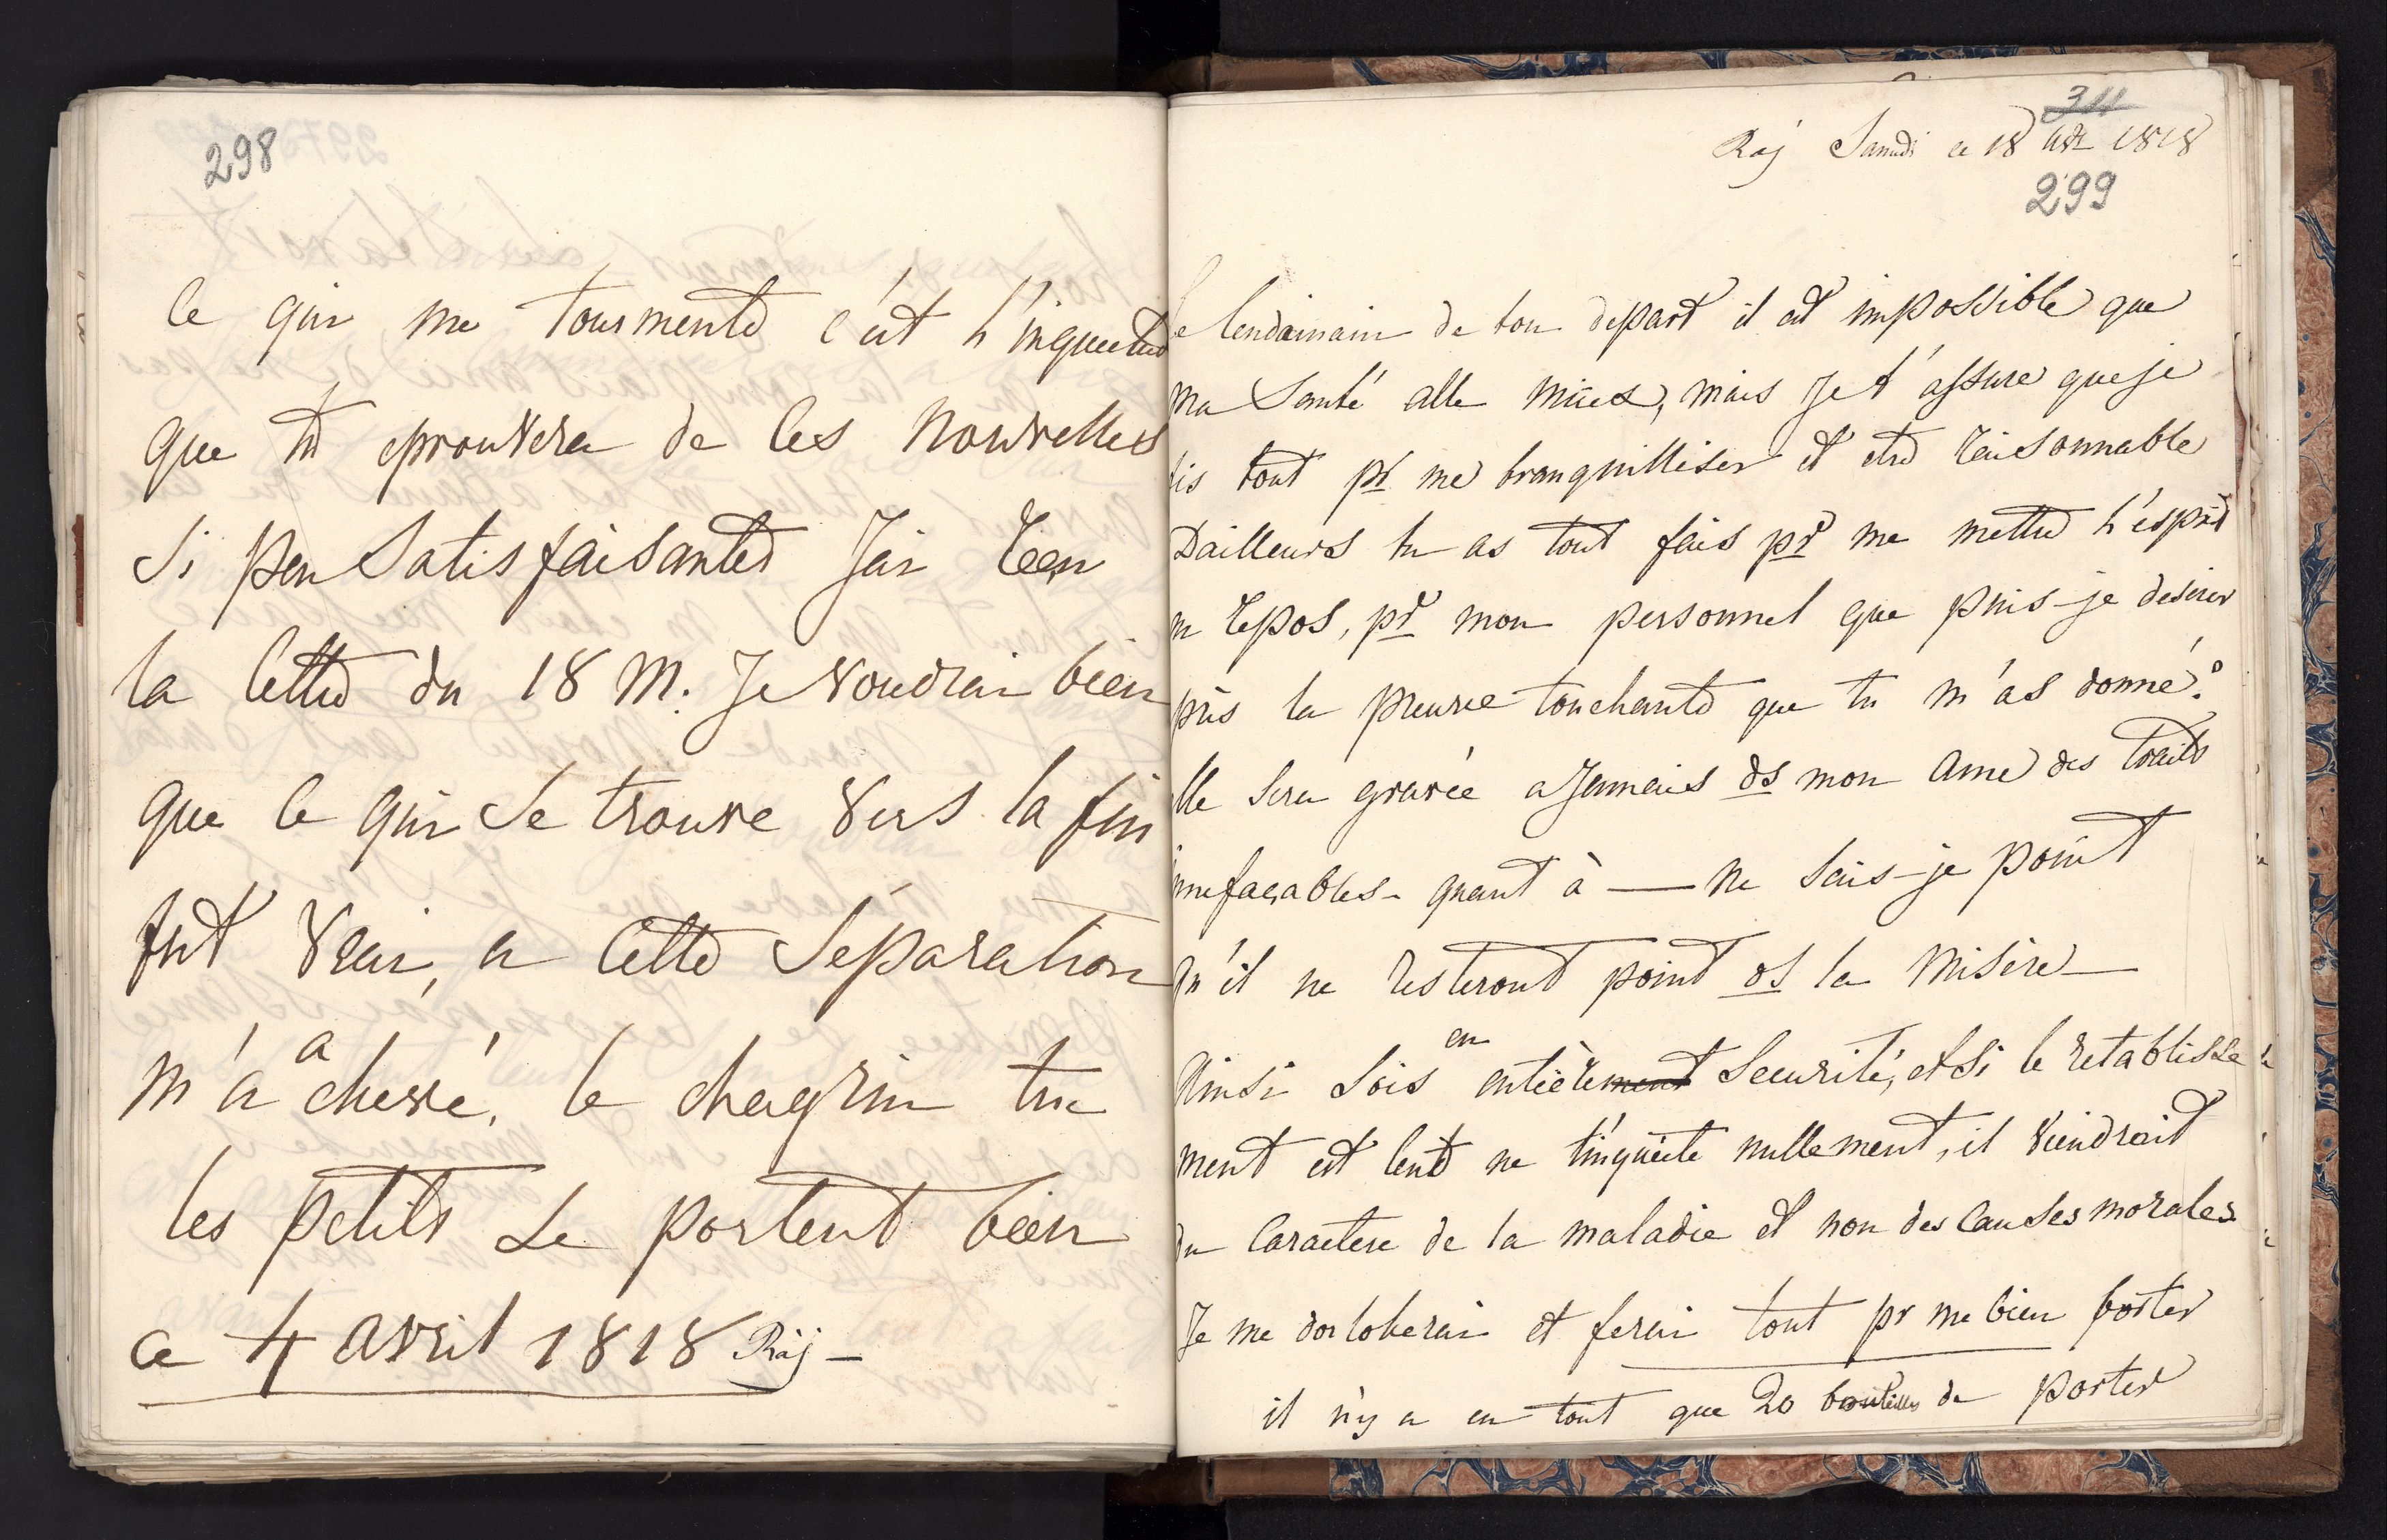 298
ce qui me tourmente c'est l'inquietude
que tu eprouvera de ces nouvelles
si peu satisfaisantes J'ai reçu
la lettre du 18 M. Je voudrai bien
que ce qui se trouve vers la fin
fut vrai, a cette séparation
m'a achevé, le chagrin tue
les petits se portent bien
ce 4 avril 1818 Raj —
311
Raj Samdi ce 18 avr 1818
299
le lendaimain de ton depart il est impossible que
ma santé alle mieux, mais Je t'assure que je
fis tout pr me tranquilliser et etre raisonnable
Dailleurs tu as tout fais pr me mettre l'esprit
en repos, pr mon personnel que puis-je desirer
près la preuve touchante que tu m'as donné?
elle sera gravée a Jamais ds mon ame des traits
innefaçables - quant à — ne sais-je point
qu'il ne resteront point ds la misère —
en
Ainsi sois entièrement securité, et si le retablisse
ment est lent ne t'inquiète nullement, il viendrait
du caractere de la maladie et non des causes morales
Je me dorloterai et ferai tout pr me bien porter
il n'y a en tout que 20 bouteilles de porter